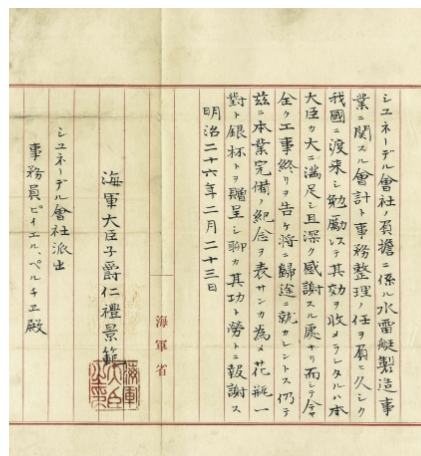 シユネーデル會社ノ負擔ニ係ル水雷艇製造事
業ニ関スル會計ト事務整理ノ任ヲ負ヒ久シク
我國ニ渡来シ勉勵以テ其効ヲ收メラレタルハ本
大臣カ大ニ満足シ且深ク感謝スル處ナリ而シテ今ヤ
全ク工事終リヲ告ケ将ニ歸途ニ就カレントス仍テ
茲ニ本業完備ノ紀念ヲ表サンカ為メ花瓶一
對ト銀杯トヲ贈呈シ聊カ其功ト勞トニ報謝ス
明治二十六年二月二十三日
海軍大臣子爵仁禮景範
海軍大臣之章
シユネーデル會社派出
事務員ピイエル、ペルチエ殿
海軍省